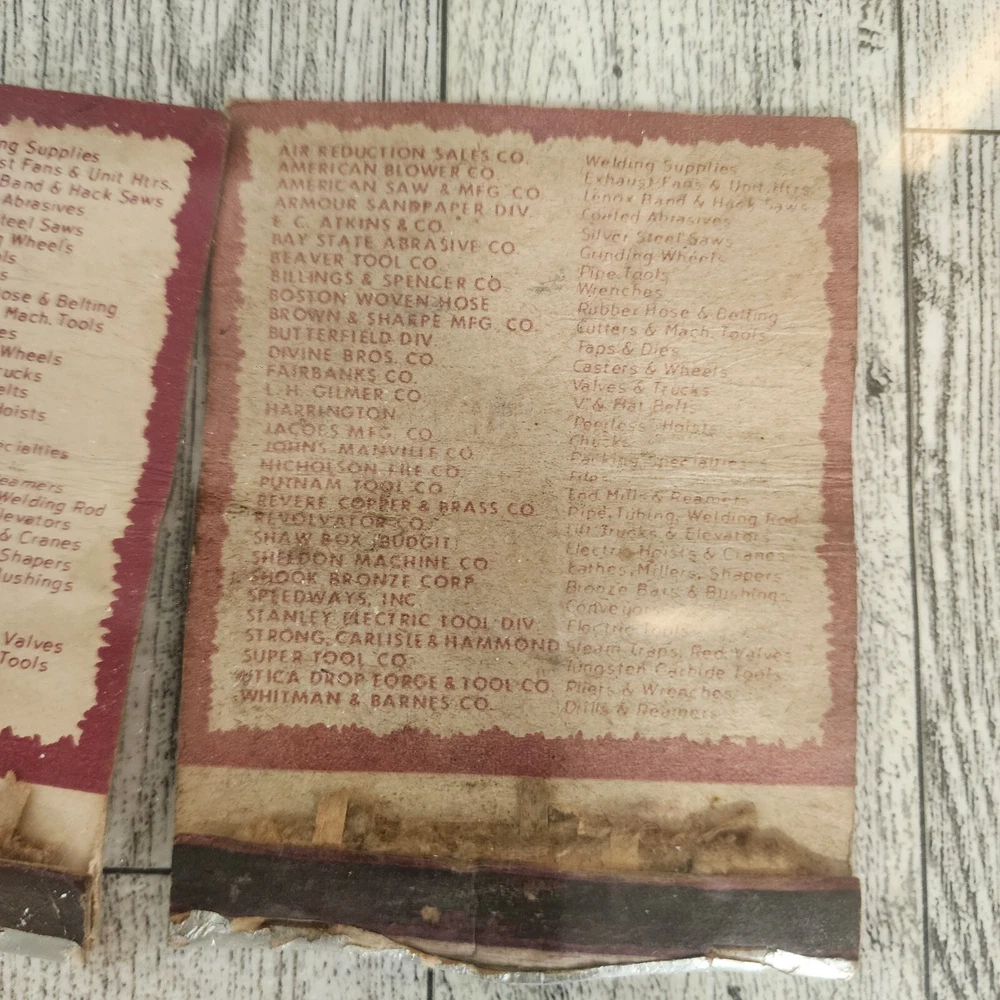 ng Supplies
st Fans & Unit Htrs.
Band & Hack Saws
Abrasives
teel Saws
g Wheels
ls
s
ose & Belting
Mach. Tools
es
Wheels
rucks
elts
Hoists
ecialties
eamers
Welding Rod
levators
& Cranes
Shapers
Bushings
Valves
Tools
AIR REDUCTION SALES CO. Welding Supplies
AMERICAN BLOWER CO. Exhaust Fans & Unit Htrs.
AMERICAN SAW & MFG. CO. Lenox Band & Hack Saws
ARMOUR SANDPAPER DIV. Coated Abrasives
E. C. ATKINS & CO. Silver Steel Saws
BAY STATE ABRASIVE CO. Grinding Wheels
BEAVER TOOL CO. Pipe Tools
BILLINGS & SPENCER CO. Wrenches
BOSTON WOVEN HOSE Rubber Hose & Belting
BROWN & SHARPE MFG. CO. Cutters & Mach. Tools
BUTTERFIELD DIV. Taps & Dies
DIVINE BROS. CO. Casters & Wheels
FAIRBANKS CO. Valves & Trucks
L. H. GILMER CO. "V" & Flat Belts
HARRINGTON "Peerless" Hoists
JACOBS MFG. CO. Chucks
JOHNS MANVILLE CO. Packing Specialties
NICHOLSON FILE CO. Files
PUTNAM TOOL CO. End Mills & Reamers
REVERE COPPER & BRASS CO. Pipe, Tubing, Welding Rod
REVOLVATOR CO. Lift Trucks & Elevators
SHAW BOX (BUDGIT) Electric Hoists & Cranes
SHELDON MACHINE CO. Lathes, Millers, Shapers
SHOOK BRONZE CORP. Bronze Bars & Bushings
SPEEDWAYS, INC. Conveyors
STANLEY ELECTRIC TOOL DIV. Electric Tools
STRONG, CARLISLE & HAMMOND Steam Traps, Red. Valves
SUPER TOOL CO. Tungsten Carbide Tools
UTICA DROP FORGE & TOOL CO. Pliers & Wrenches
WHITMAN & BARNES CO. Drills & Reamers